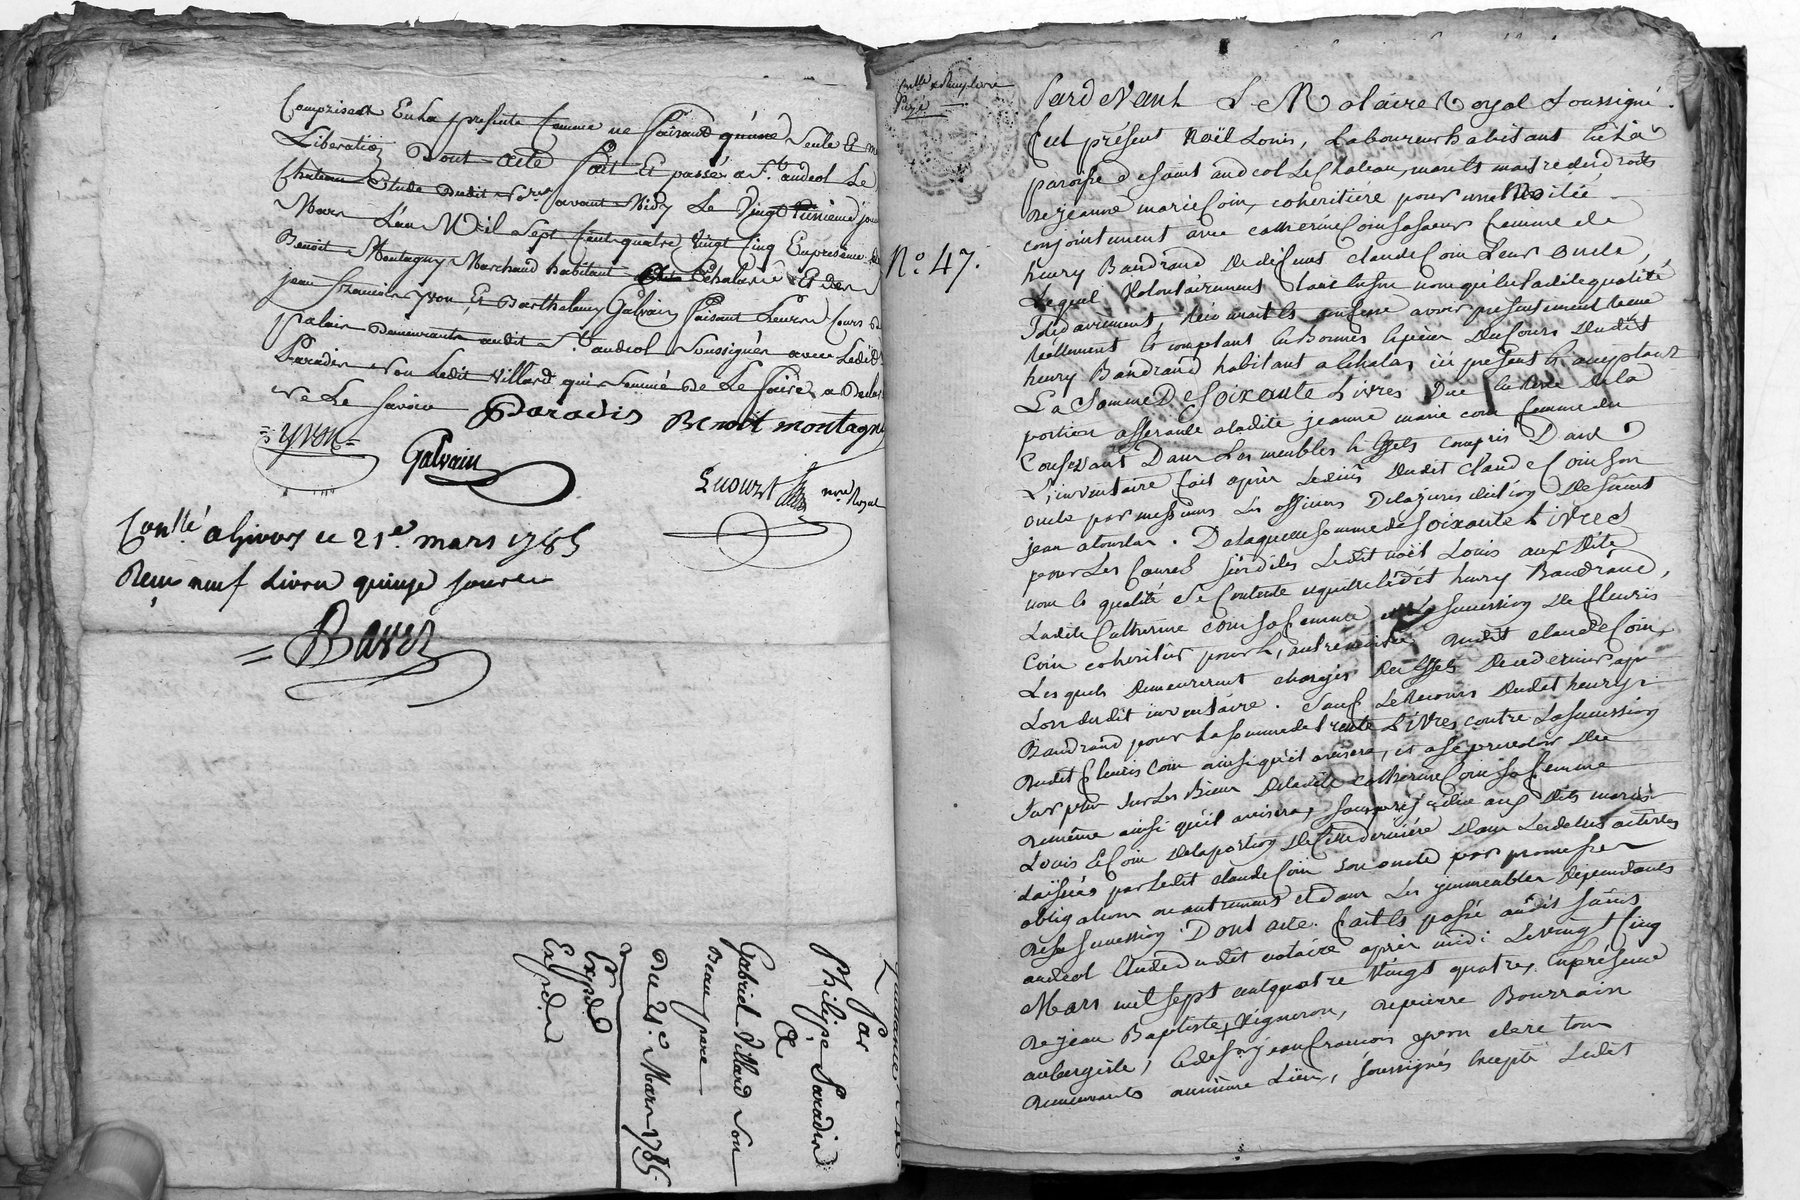 Comprises En La presente Comme ne faisant qu'une Seule Et me
Liberation Dont acte fait Et passé a St. andeol Le
Chateau Etude dudit Nre. avant Midy Le Vingt unieme jour
Mars L'an Mil Sept Cent quatre Vingt Cinq En presence de
Benoit Montagny Marchand habitant a Echalas Et de
jean françois yvon, Et Barthelemy Galvain faisant Leurs Cours de
palais Demeurants audit St. andeol Soussignés avec Ledit
Paradis Non Ledit Villard qui Sommé De Le faire a Declaré
ne Le Savoir
Paradis
Benoit montagny
yvon
Galvain
nre Royal
Conllé a Givors le 21e. mars 1785
Reçu neuf Livres quinze sous
Par
Philipe Paradis
a
Gabriel Villard Son
Beau pere
Du 21e. Mars 1785
Expdé
Expdé
Pardevant Le Notaire Royal Soussigné.
fut présent Noël Louis, Laboureur habitant en La
paroisse de saint andeol Le Chateau, mari et maitre des droits
N.o 47.
de jeanne marie Coin, cohéritière pour une Moitié
conjointement avec catherine Coin sa soeur femme de
henry Bandrand de defunt claude Coin Leur oncle,
Lequel Volontairement tant en son nom qu'en Sadite qualité
Solidairement, reconnait et confesse avoir présentement Reçu
réellement et comptant en bonnes Espèces du Cours dudit
henry Bandrand habitant a Echalas ici présent et acceptant
La Somme De Soixante Livres
portion afferante a ladite jeanne marie coin femme du
Confessant Dans Les meubles et effets compris Dans
L'inventaire fait après Le decès dudit claude Coin son
oncle par messieurs Les officiers De la jurisdiction De saint
jean a tourlas. De laquelle somme de Soixante Livres
pour Les Causes Susdites Ledit noël Louis aux dits
nom et qualité Se Contente et quitte Ledit henry Bandrand,
Ladite Catherine coin sa femme et La Succession De fleuris
Coin coheritier pour L'autre moitié dudit claude Coin,
Lesquels demeureront chargés des effets De ce dernier
Lors dudit inventaire. Sauf Le Recours Dudit henry
Bandrand pour La somme de trente Livres contre La succession
dudit fleuris Coin ainsi qu'il avisera, et a se prevaloir du
Surplus sur Les Biens De ladite catherine Coin sa femme
de même ainsi qu'il avisera, sans prejudice aux Dits mariés
Louis et Coin de la portion De Cette dernière dans Les dettes actives
Laissées par Ledit claude Coin son oncle par promesses
obligations ou autrement et dans Les immeubles dépendants
de sa succession. Dont acte. fait et passé audit saint
andeol Etude dudit notaire après midi Le vingt Cinq
Mars mil sept cent quatre Vingt quatre. En présence
de jean Baptiste Vigneron, de pierre Bourrain
aubergiste, et de Sr. jean francois yvon clerc tous
demeurants au même Lieu, soussignés Excepté Ledit